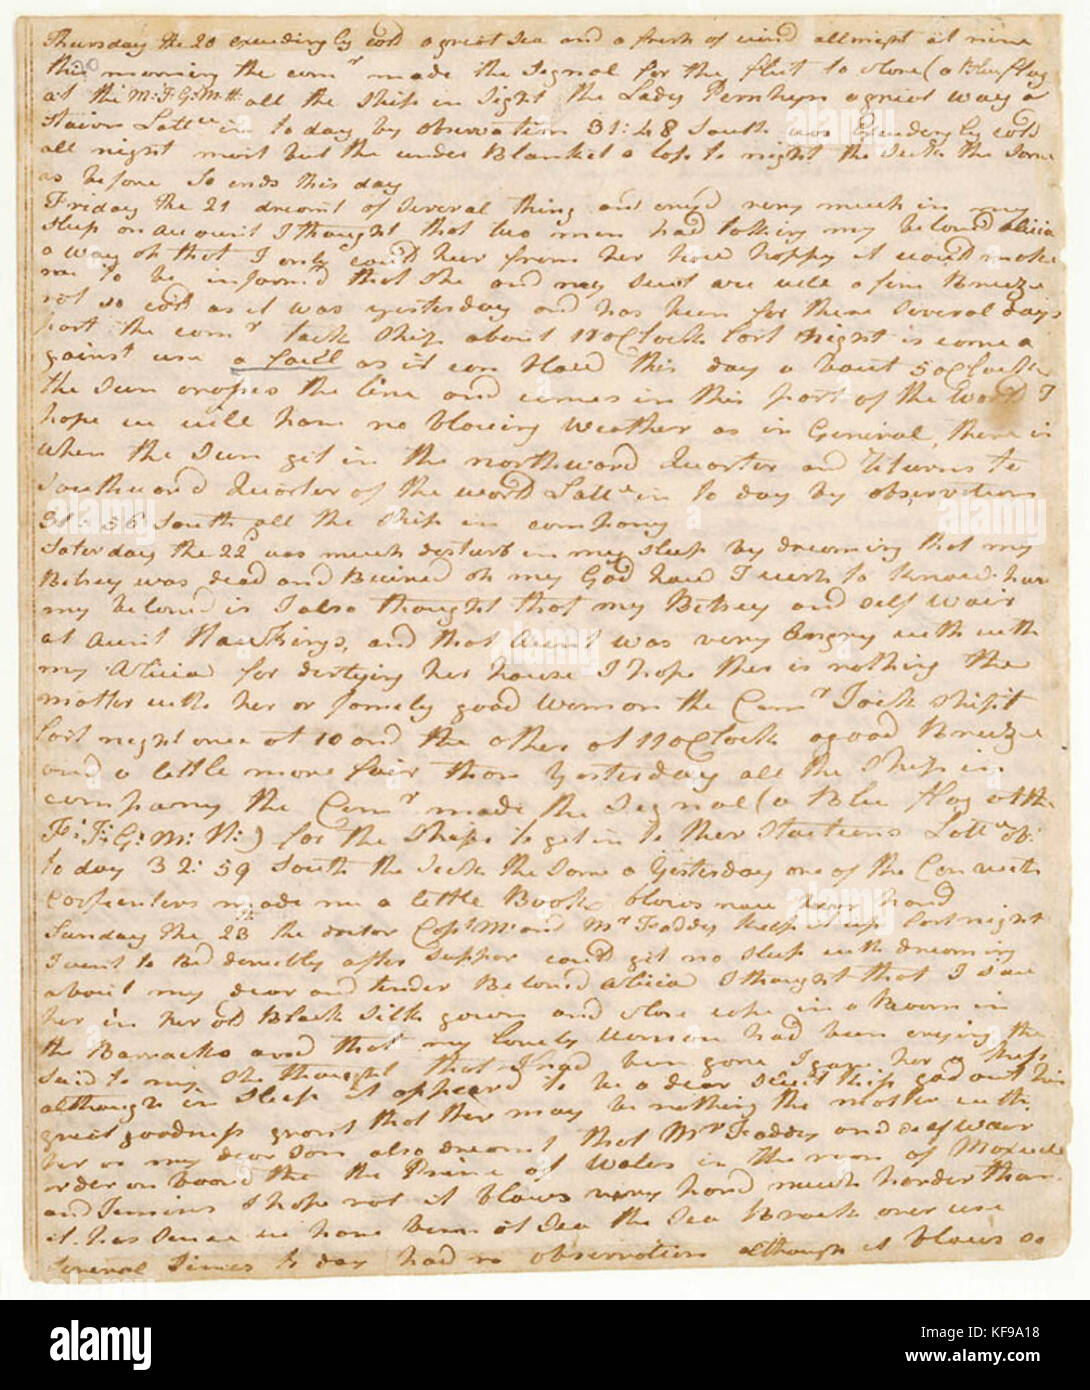 Thursday the 20 exceedingly cold a great Sea and a fresh of wind all night at nine
this morning the comr made the Signal for the fleet to close (a Blue flag
at the M: F: G: M: H: all the Ship in Sight the Lady Penrhyn a great way a
Stairn Latt in to day by observation 31:48 South was exceedingly cold
all night must but the under Blanket a top to night the Seck the Same
as before So ends this day
Friday the 21 dreamt of several thing and much in my
sleep on account I thought that two men had taking my beloved Alicia
a way oh that I only could hear from her how happy it would make
me to be informd that She and my Sweet are well a fine Breeze
not so cold as it was yesterday and has been for these Several days
past the comr tack Ship about 11 oClock last night is come a
gainst use a as it can Haw this day a bout 5 oClock
the Sun crosses the line and comes in this part of the World I
hope we will have no blowing weather as in General there is
when the Sun get in the northward Quarter and returns to
Southward Quarter of the world Latt in to day by observation
31:56 South all the Ship in company
Saterday the 22d was much desturb in my Sleep by dreaming that my
Betsey was dead and Buried oh my God how I wish to know how
my beloved is I also thought that my Betsey and Self wair
at aunt Hawkings, and that aunt was very angry with with
my Alicia for dertying her house I hope ther is nothing the
matter with her or famely good woman the Comr Tack Ship't
last night once at 10 and the other at 11 oClock a good Breeze
and a lettle more fair than Yesterday all the Ship in
company the Comr made the Signal (a Blue flag at the
F: F: G: M: H:) for the Ships to get in to ther Stations Latt ob:
to day 32:59 South the Seck the Same a Yesterday one of the Convicts
Carpenters made me a little Book, blows now very hard
Sunday the 23 the doctor Capt M: and Mr Faddy keep it up last night
I went to Bed derectly after Supper could get no Sleep with dreaming
about my dear and tender Beloved Alicia I thought that I Saw
her in her old Black Silk gown and close in a Room in
the Barracks and that my lovely woman had been crying She
Said to my She thought that I had ben gone I gave her a kiss
although in Sleep it appeard to be a dear Sweet kiss god out his
great goodness grant that ther may be nothing the matter with
her or my dear Son also dreamt that Mr Faddy and Self wair
order on board the the Prince of Wales in the room of Maxwell
and I hope not it blows very hard much harder than
it has Sence we have been at Sea the Sea Brack over use
Several Times to day had no observation although it blows So
alamy
Image ID: KF9A18
www.alamy.com